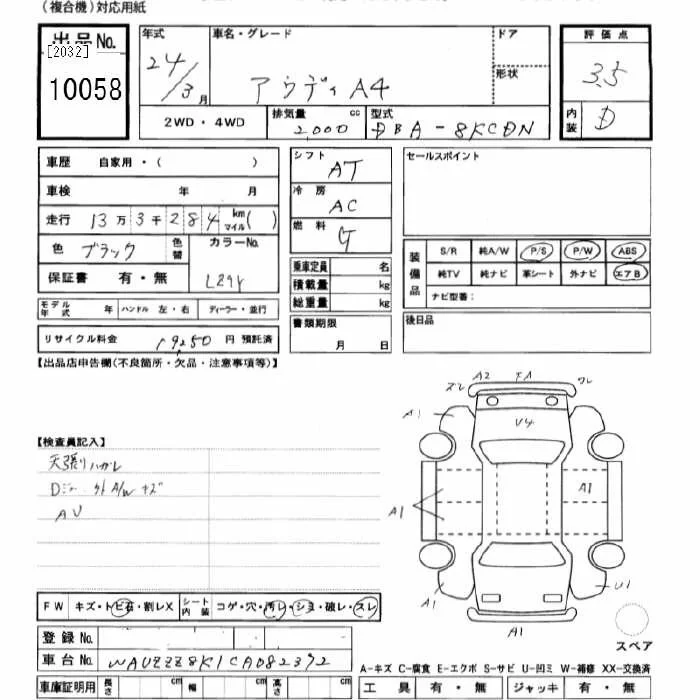 (複合機)対応用紙
出品No.
[2032]
10058
年式
24/3月
車名・グレード
アウディ A4
ドア
形状
評価点
3.5
内装
D
2WD・4WD
排気量
2000 cc
型式
DBA-8KCDN
車歴 自家用・( )
車検 年 月
走行 13万3千284 km マイル( )
色 ブラック 色替
カラーNo.
保証書 有・無
シフト AT
冷房 AC
燃料 G
乗車定員 名
積載量 kg
総重量 kg
書類期限
月 日
セールスポイント
装備品
S/R 純A/W P/S P/W ABS
純TV 純ナビ 革シート 外ナビ エアB
ナビ型番:
後日品
モデル年式 年 ハンドル 左・右 ディーラー・並行
リサイクル料金 19250 円 預託済
【出品店申告欄(不良箇所・欠品・注意事項等)】
【検査員記入】
天張りハガレ
AV
A2
A1
V4
A1
A1
A1
U1
A1
スペア
FW キズ・トビ石・割レX シート内装 コゲ・穴・汚レ・シミ・破レ・スレ
登録No.
車台No. WAUZZZ8K1CA082392
車庫証明用 長さ cm 幅 cm 高さ cm
A-キズ C-腐食 E-エクボ S-サビ U-凹ミ W-補修 XX-交換済
工具 有・無 ジャッキ 有・無